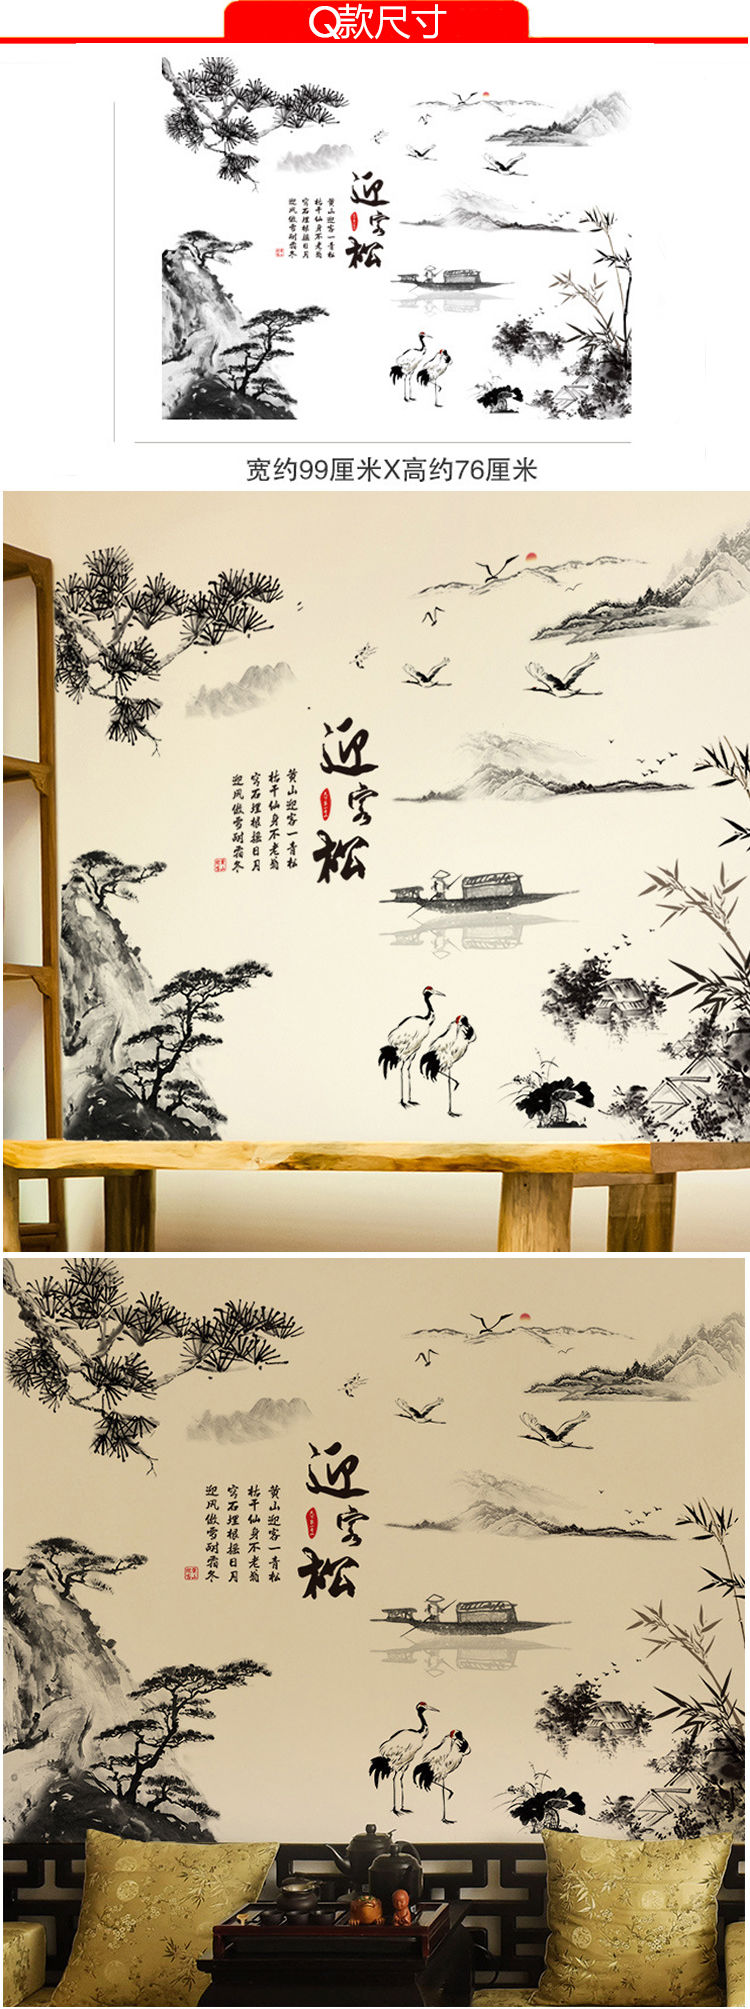 Q款尺寸
迎客松
黄山迎客一青松
枯干仙身不老翁
穷石埋根摇日月
迎风傲雪耐霜冬
宽约99厘米X高约76厘米
迎客松
黄山迎客一青松
枯干仙身不老翁
穷石埋根摇日月
迎风傲雪耐霜冬
迎客松
黄山迎客一青松
枯干仙身不老翁
穷石埋根摇日月
迎风傲雪耐霜冬